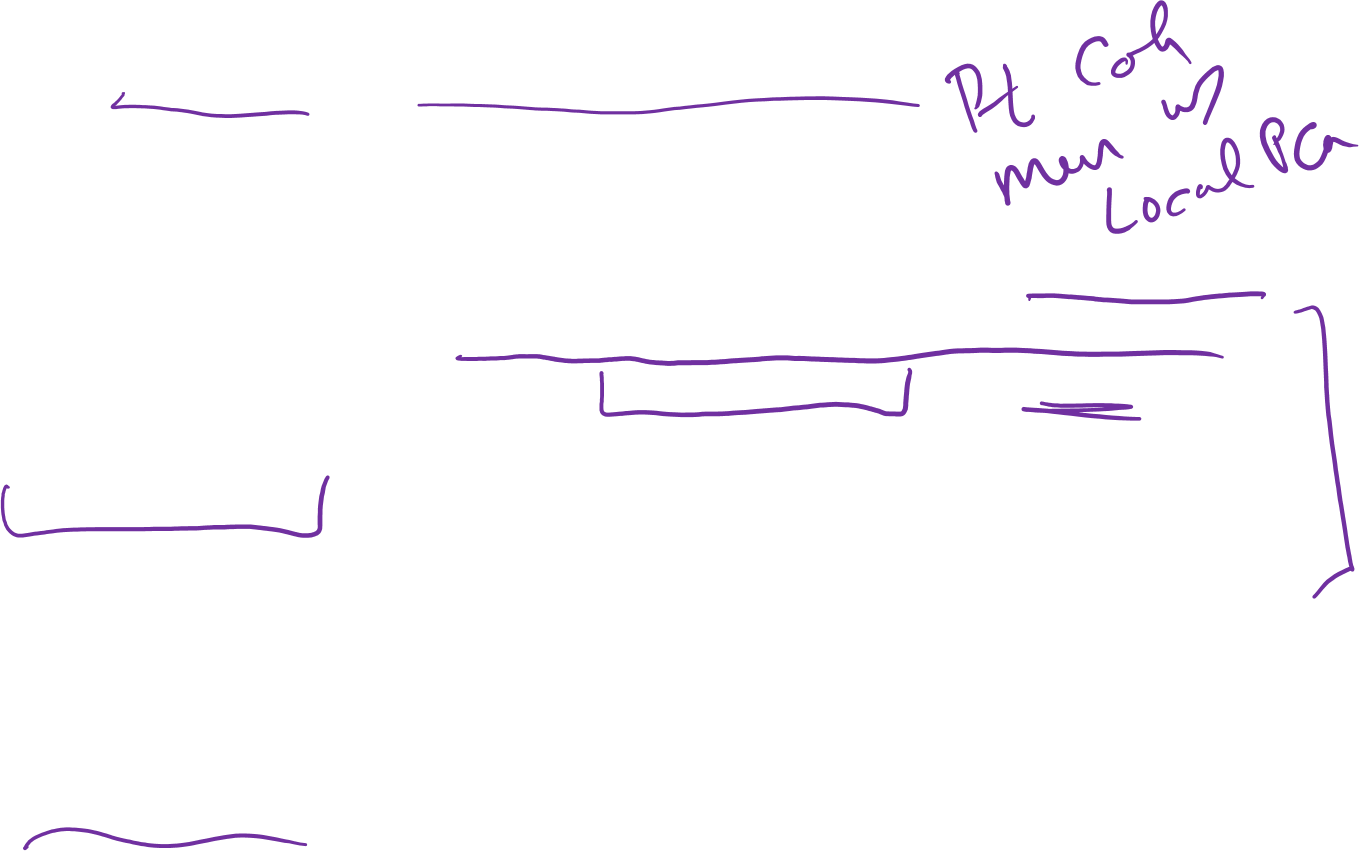 Pt Coh
men w/
Local PCa